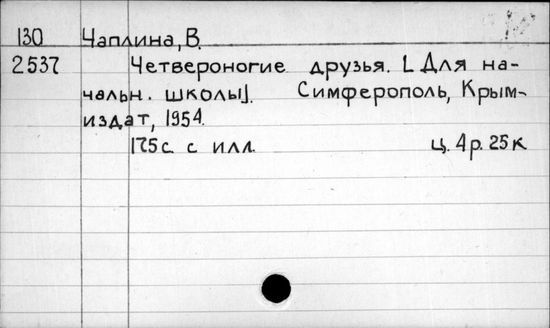 130 Чаплина, В.
2537 Четвероногие друзья. [Для на-
чальн. школы]. Симферополь, Крым-
издат, 1954.
175с. с илл. ц. 4р. 25к